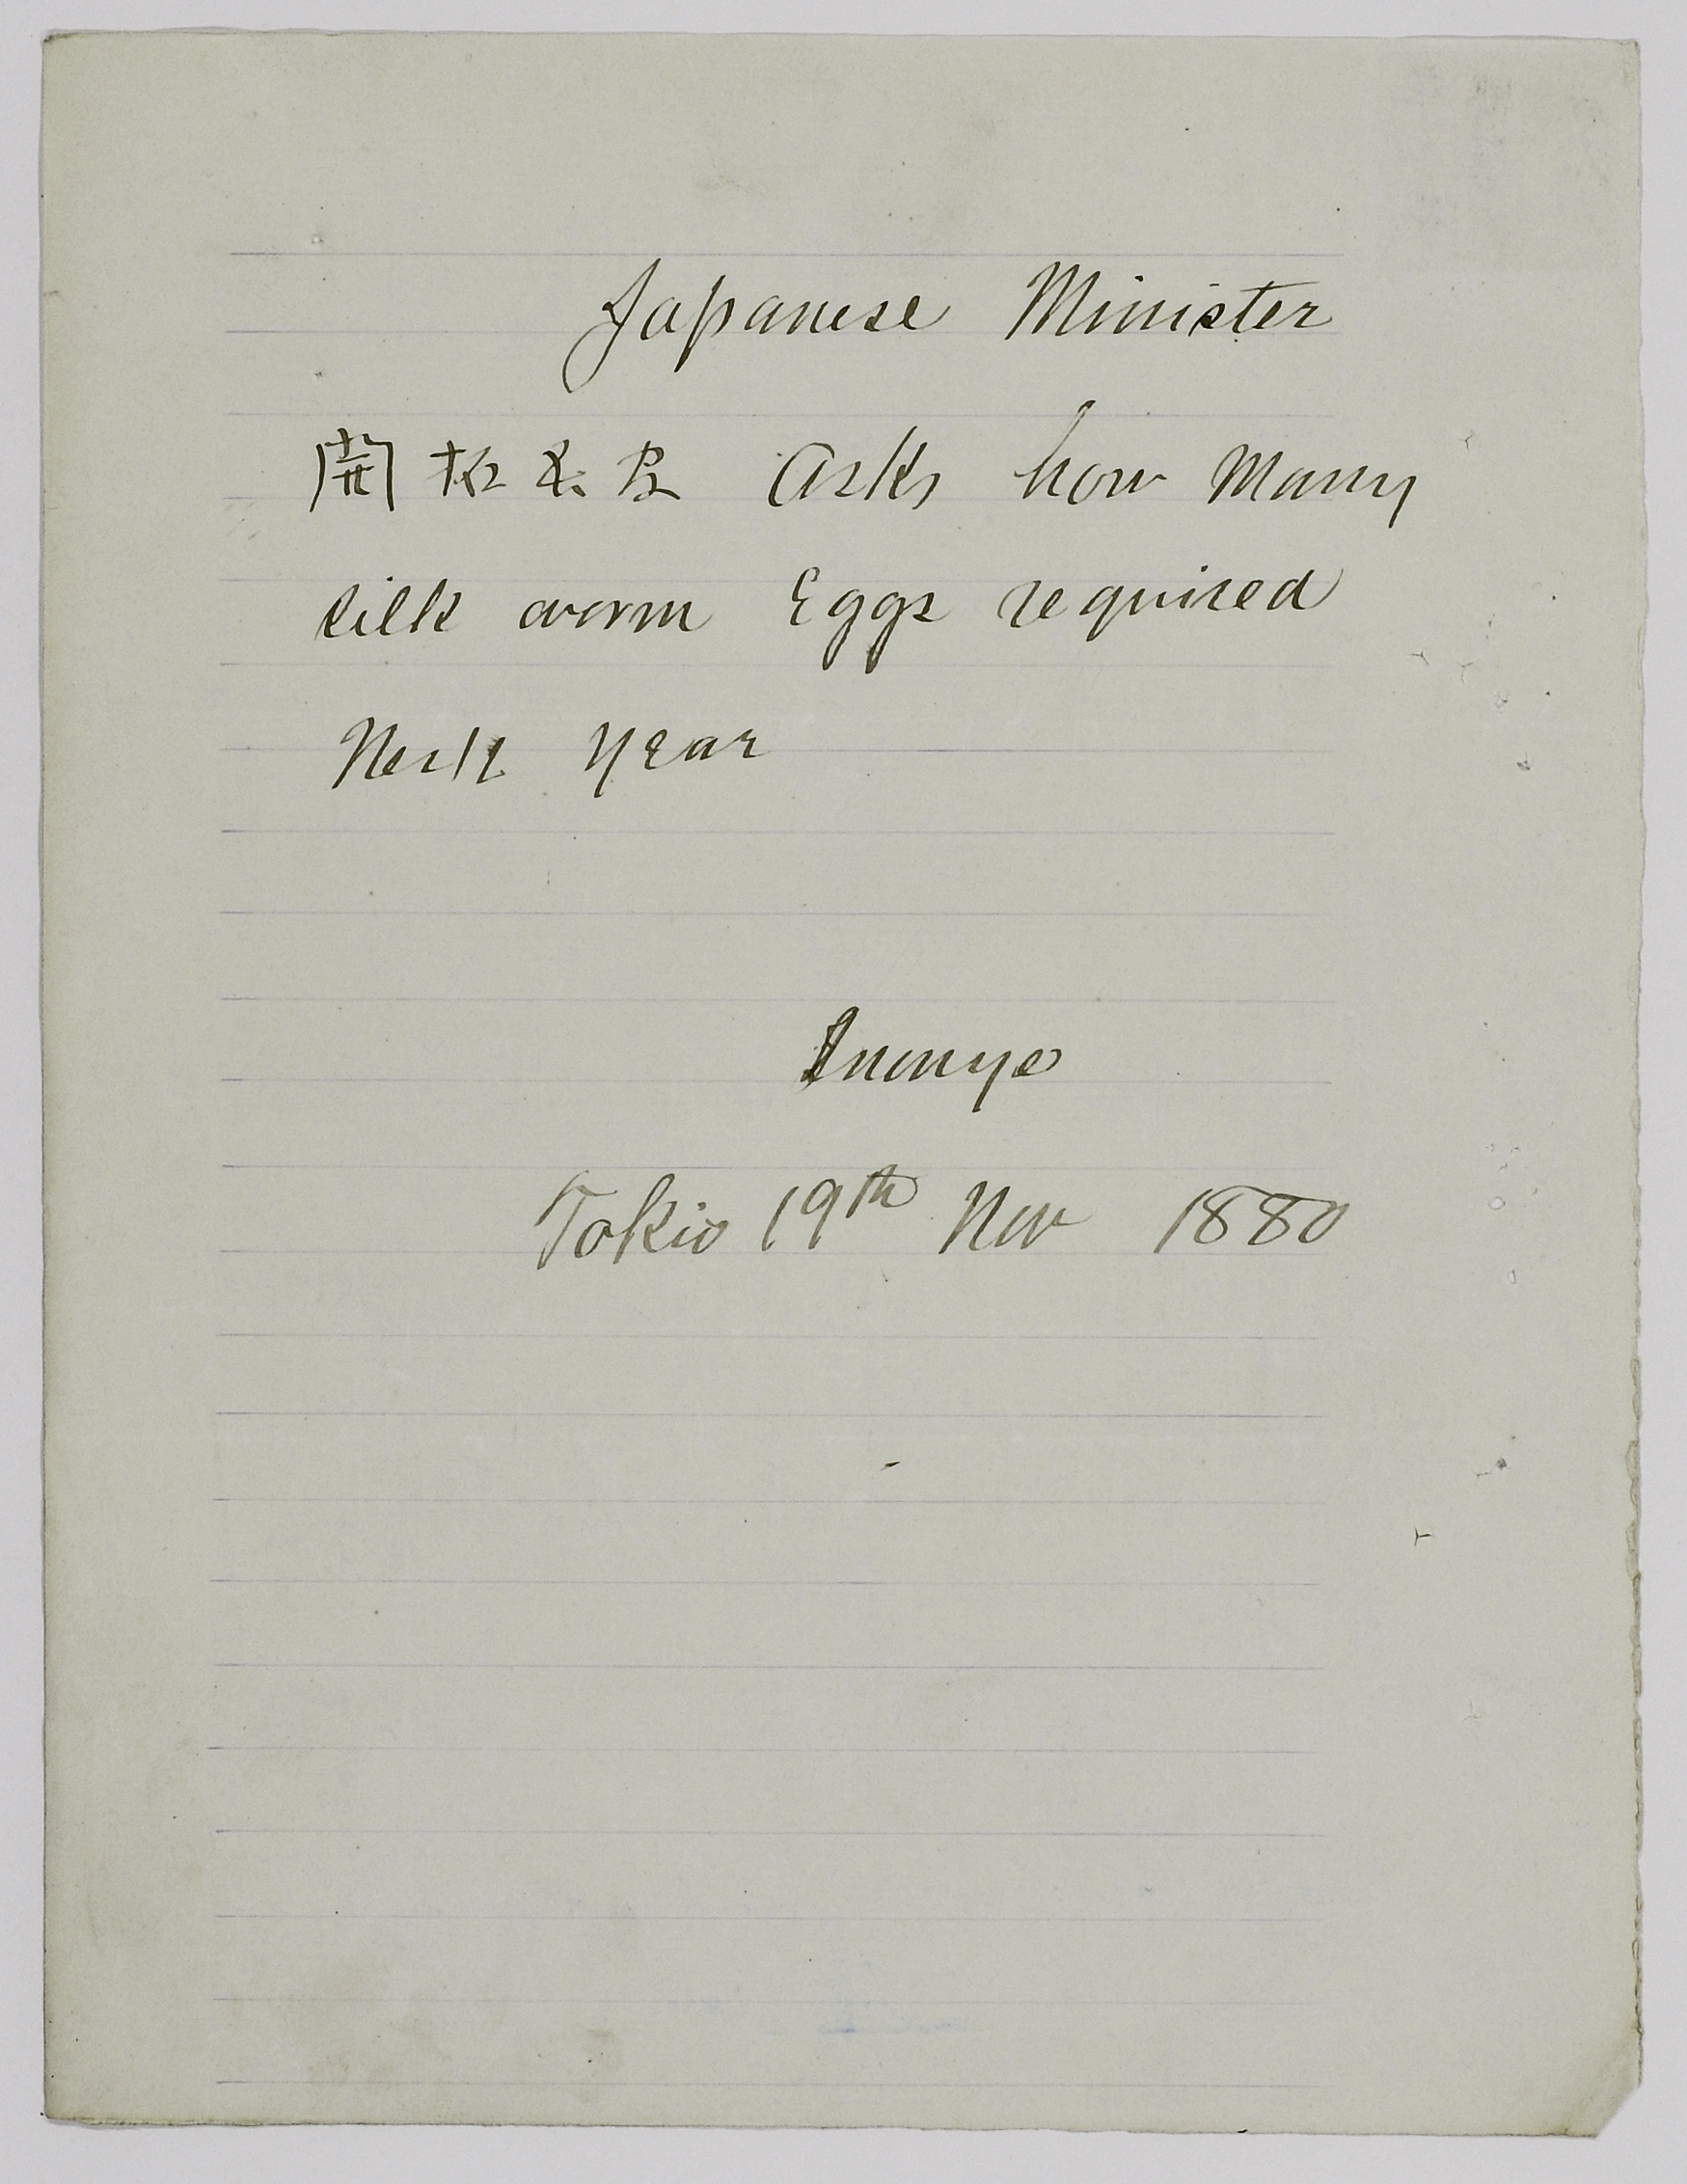 Japanese Minister
開拓 asks how many
silk worm Eggs required
Next year
Inouye
Tokio 19th Nov 1880